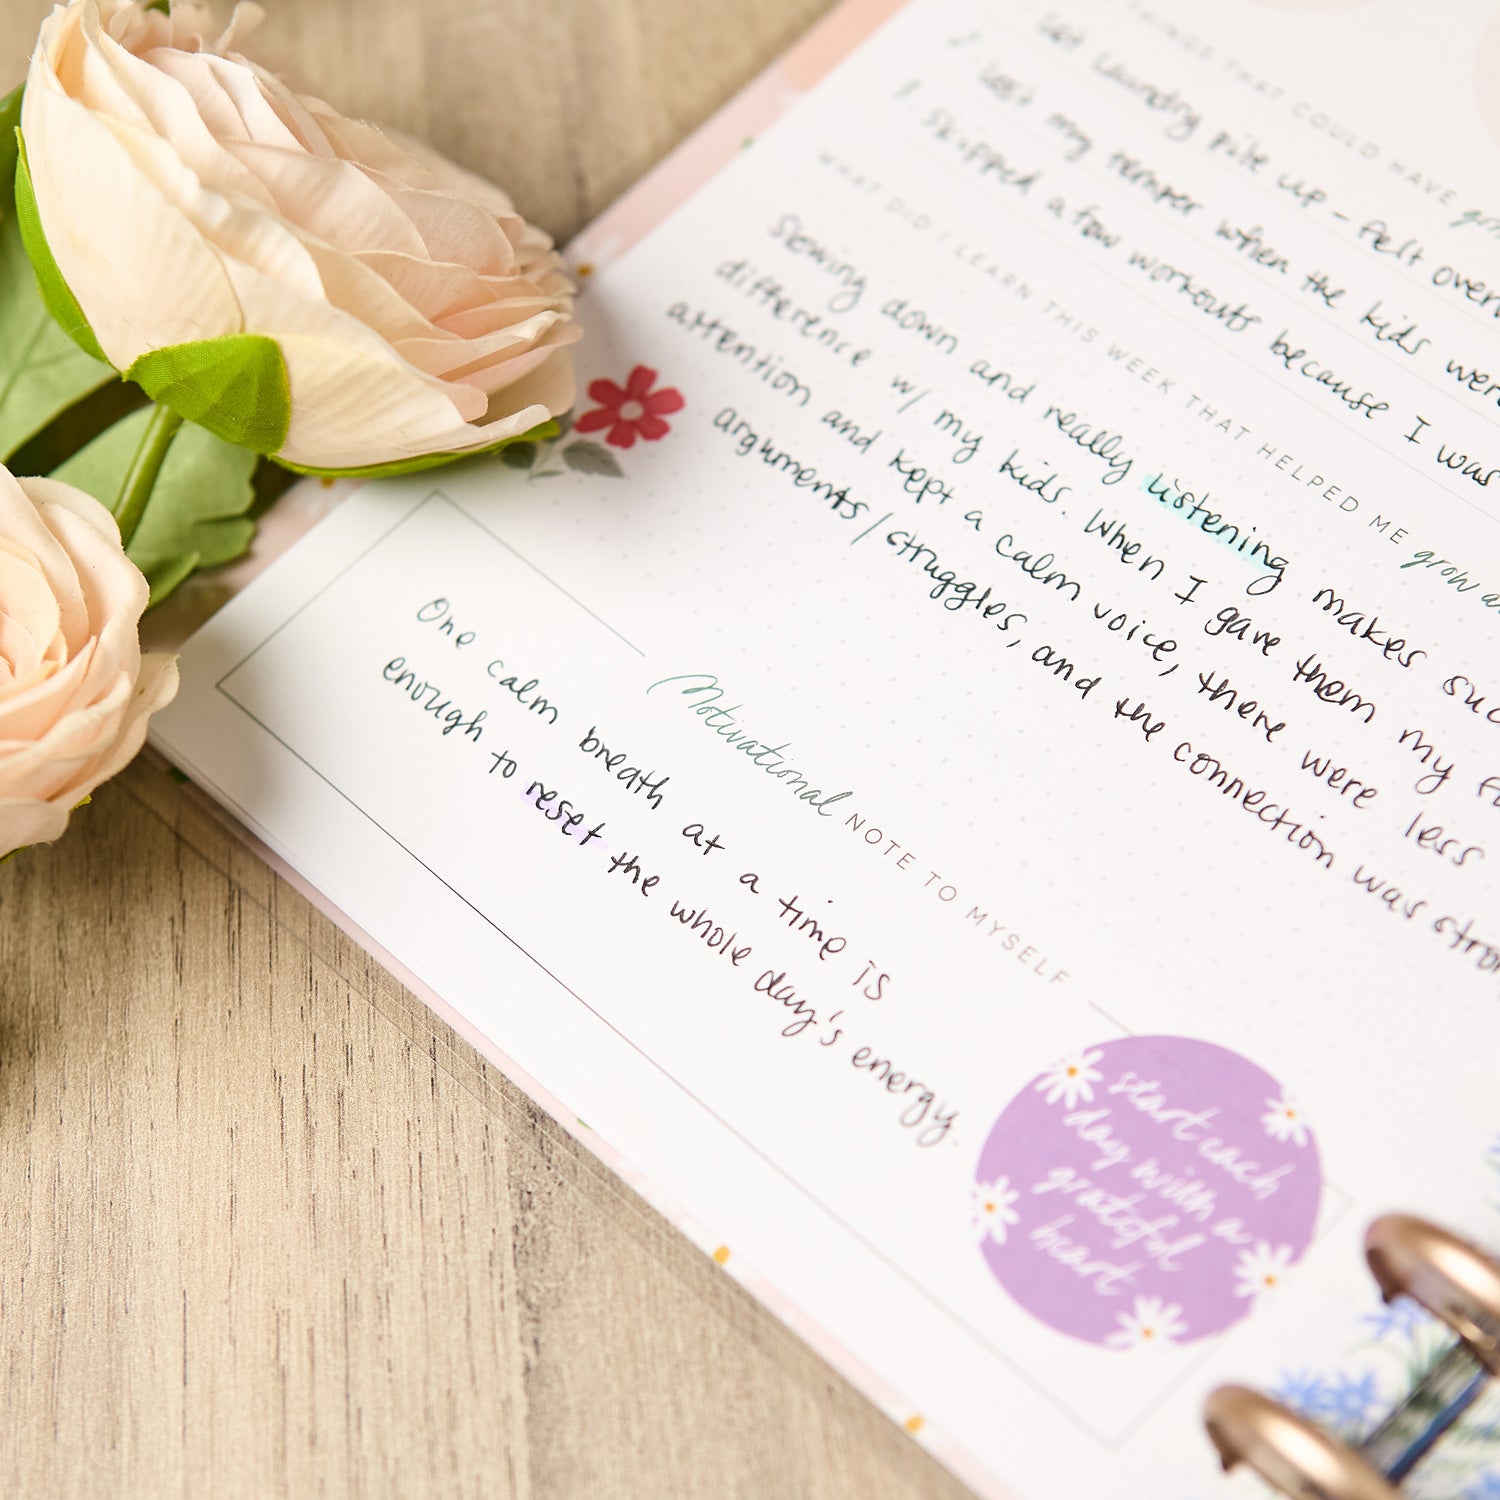 THINGS THAT COULD HAVE
Let laundry pile up - felt
2. Lost my temper when the kids were
3. Skipped a few workouts because I was
WHAT DID I LEARN THIS WEEK THAT HELPED ME grow
Slowing down and really listening makes
difference w/ my kids. When I gave them my
attention and kept a calm voice, there were less
arguments/struggles, and the connection was
Motivational NOTE TO MYSELF
One calm breath at a time is
enough to reset the whole day's energy.
start each
day with a
grateful
heart